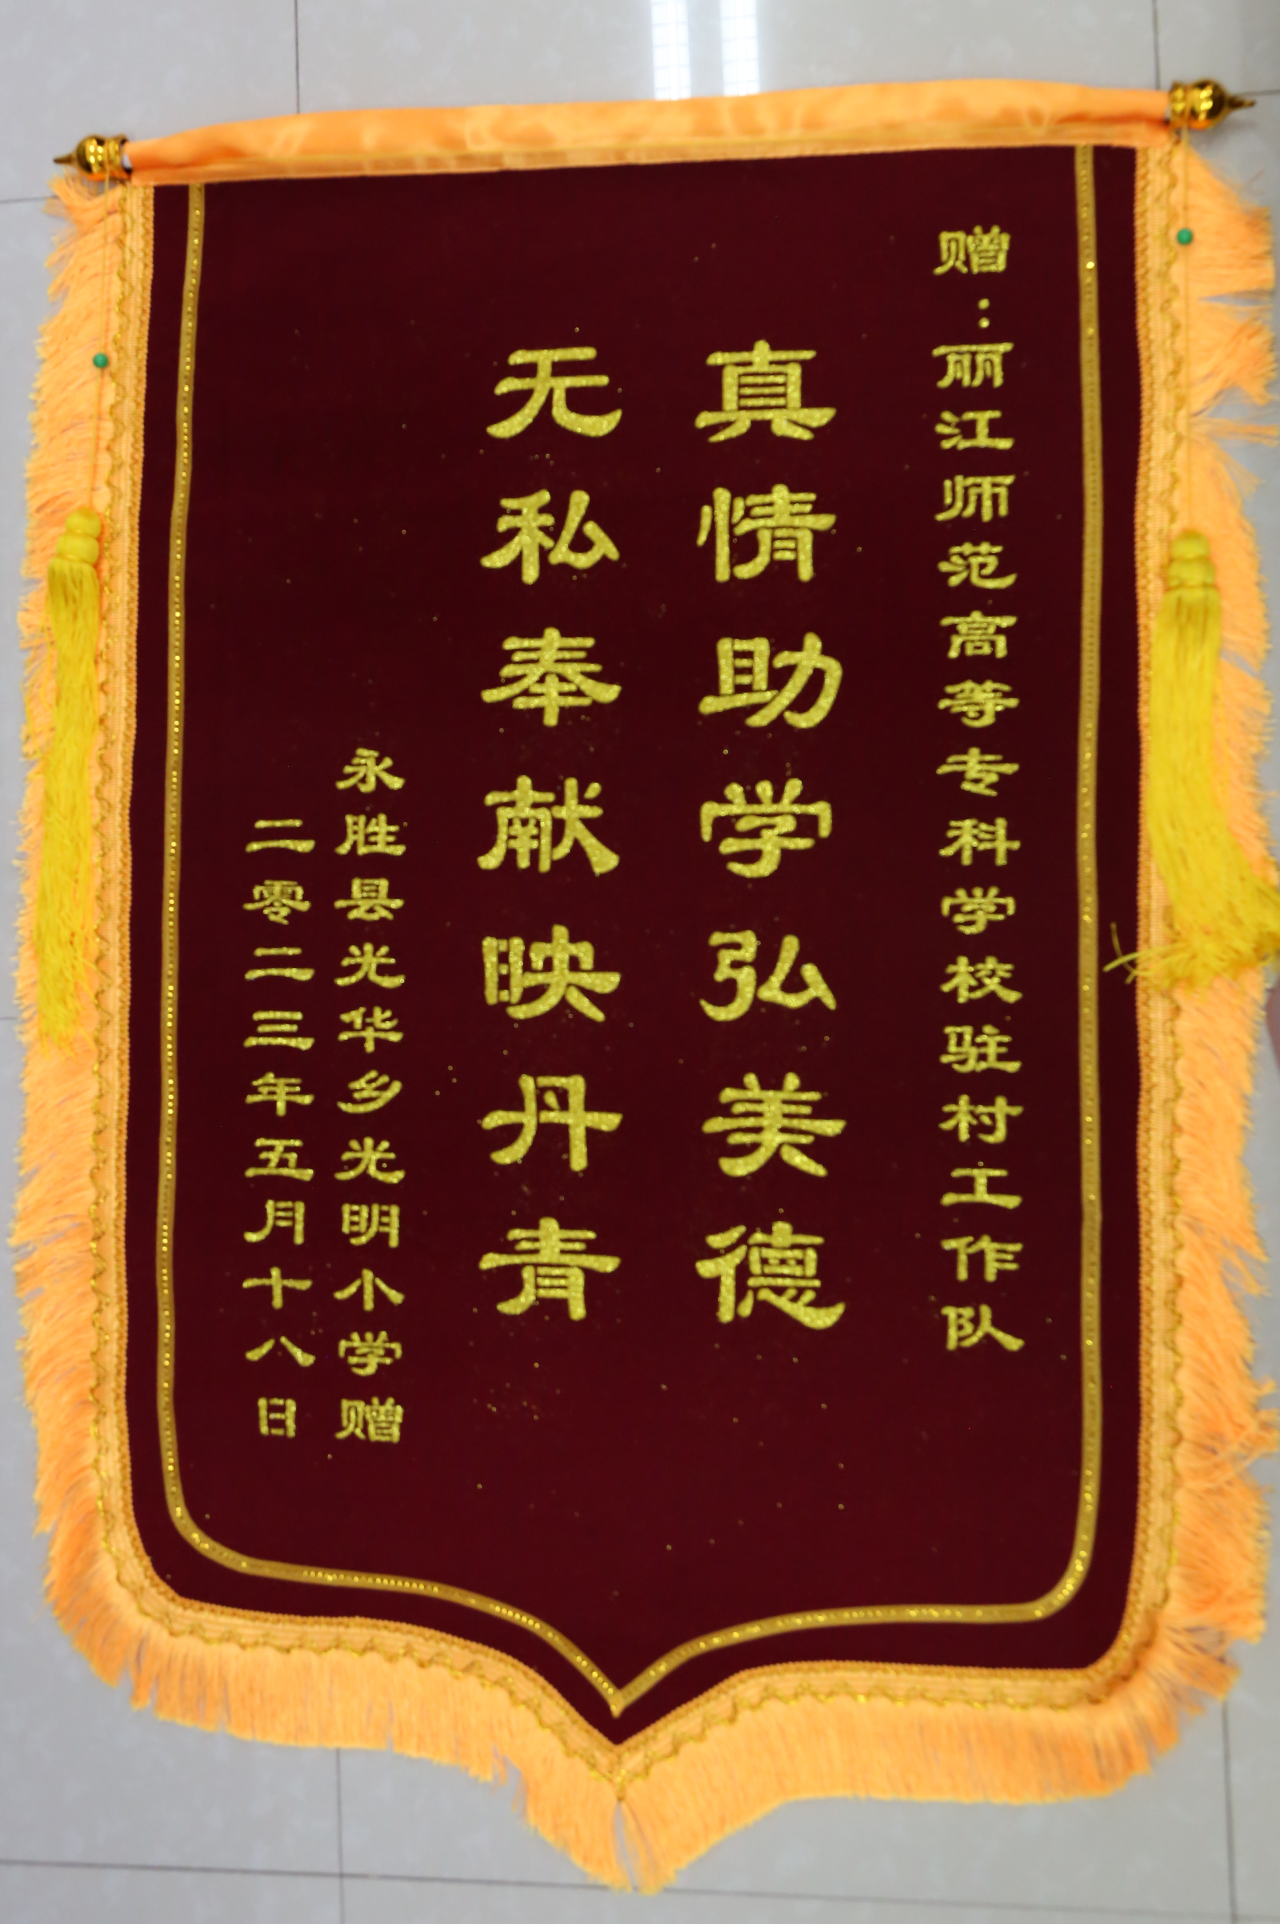 赠：丽江师范高等专科学校驻村工作队
真情助学弘美德
无私奉献映丹青
永胜县光华乡光明小学赠
二零二三年五月十八日